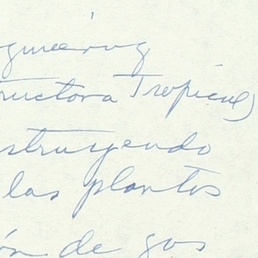 gineering
tructora Tropical)
struyendo
las plantas
ón de gas